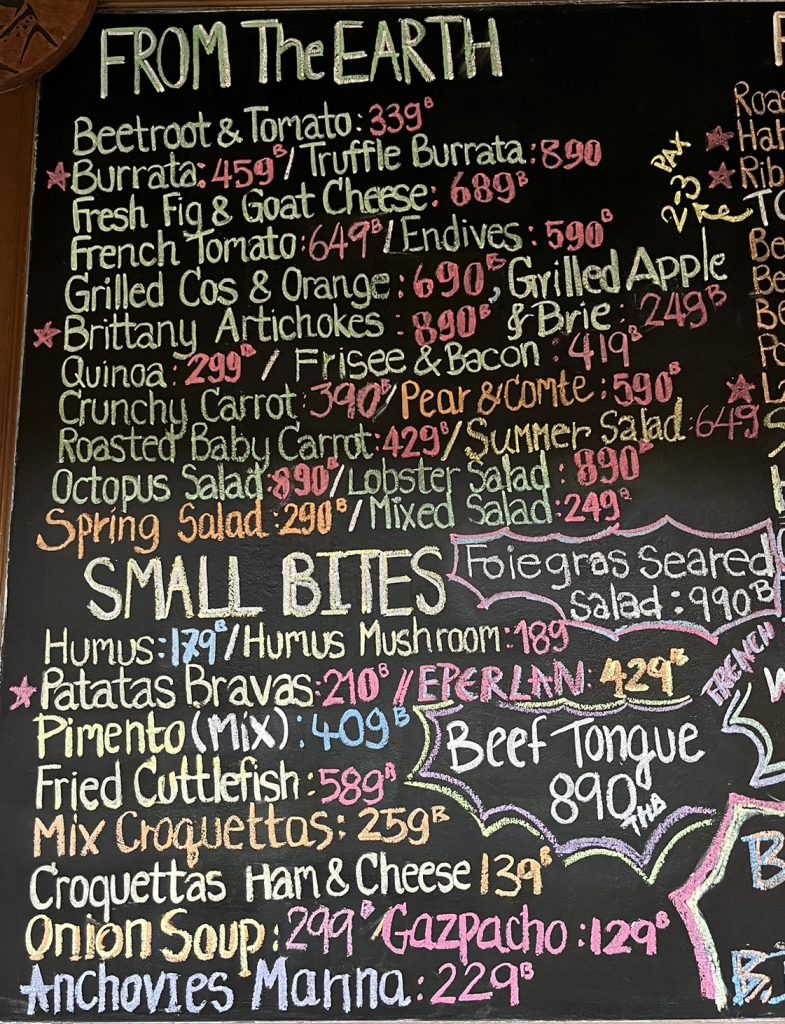 FROM The EARTH
Beetroot & Tomato: 339B
Burrata: 459B / Truffle Burrata: 890
Fresh Fig & Goat Cheese: 689B
French Tomato: 649B / Endives: 590B
2-3 PAX
Grilled Cos & Orange: 690B, Grilled Apple
& Brie: 249B
Brittany Artichokes: 890B
Quinoa: 299B / Frisee & Bacon: 419B
Crunchy Carrot: 390B / Pear & Comte: 590B
Roasted Baby Carrot: 429B / Summer Salad: 649
Octopus Salad: 890B / Lobster Salad: 890B
Spring Salad: 290B / Mixed Salad: 249B
Foiegras Seared
Salad: 990B
SMALL BITES
Humus: 179B / Humus Mushroom: 189
Patatas Bravas: 210B // EPERLAN: 429B
Pimento (Mix): 409B
Beef Tongue
890 THB
Fried Cuttlefish: 589B
Mix Croquettas: 259B
Croquettas Ham & Cheese 139B
Onion Soup: 299B / Gazpacho: 129B
Anchovies Marina: 229B
Roas
Hah
Rib
TO
Be
Be
Be
Po
La
FRENCH